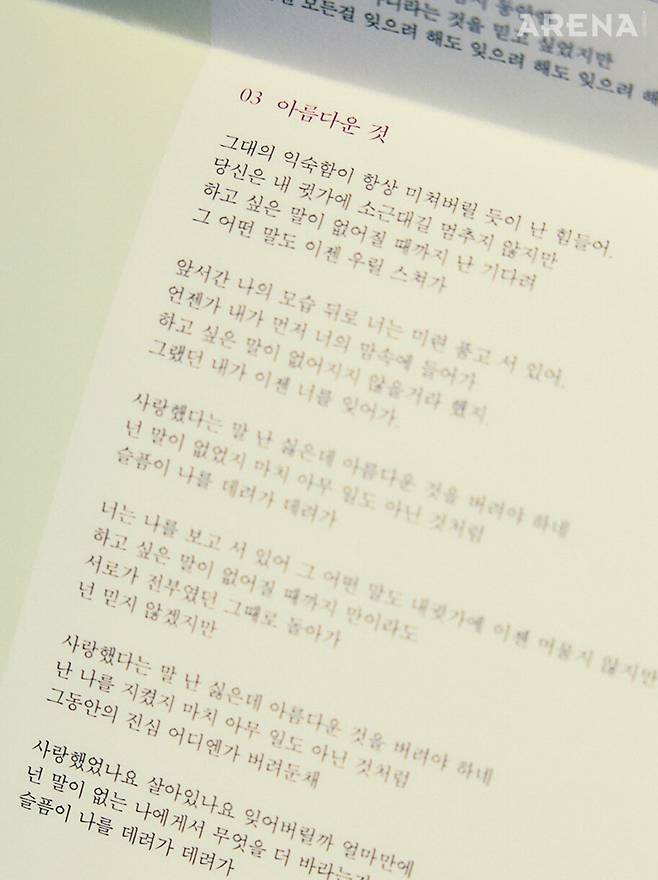 ARENA
아니라는 것을 믿고 싶었지만
모든걸 잊으려 해도 잊으려 해도 잊으려 해
03 아름다운 것
그대의 익숙함이 항상 미쳐버릴 듯이 난 힘들어.
당신은 내 귓가에 소근대길 멈추지 않지만
하고 싶은 말이 없어질 때까지 난 기다려
그 어떤 말도 이젠 우릴 스쳐가
앞서간 나의 모습 뒤로 너는 미련 품고 서 있어.
언젠가 내가 먼저 너의 맘속에 들어가
하고 싶은 말이 없어지지 않을거라 했지.
그랬던 내가 이젠 너를 잊어가.
사랑했다는 말 난 싫은데 아름다운 것을 버려야 하네
넌 말이 없었지 마치 아무 일도 아닌 것처럼
슬픔이 나를 데려가 데려가
너는 나를 보고 서 있어 그 어떤 말도 내귓가에 이젠 머물지 않지만
하고 싶은 말이 없어질 때까지 만이라도
서로가 전부였던 그때로 돌아가
넌 믿지 않겠지만
사랑했다는 말 난 싫은데 아름다운 것을 버려야 하네
난 나를 지켰지 마치 아무 일도 아닌 것처럼
그동안의 진심 어디엔가 버려둔채
사랑했었나요 살아있나요 잊어버릴까 얼마만에
넌 말이 없는 나에게서 무엇을 더 바라는가
슬픔이 나를 데려가 데려가